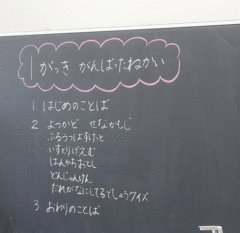 1がっき がんばったねかい
1. はじめのことば
2. よつかど せなかもじ
ふるうつばすけっと
いすとりげえむ
はんかちおとし
どんじゃんけん
だれがなにしてるでしょうクイズ
3. おわりのことば